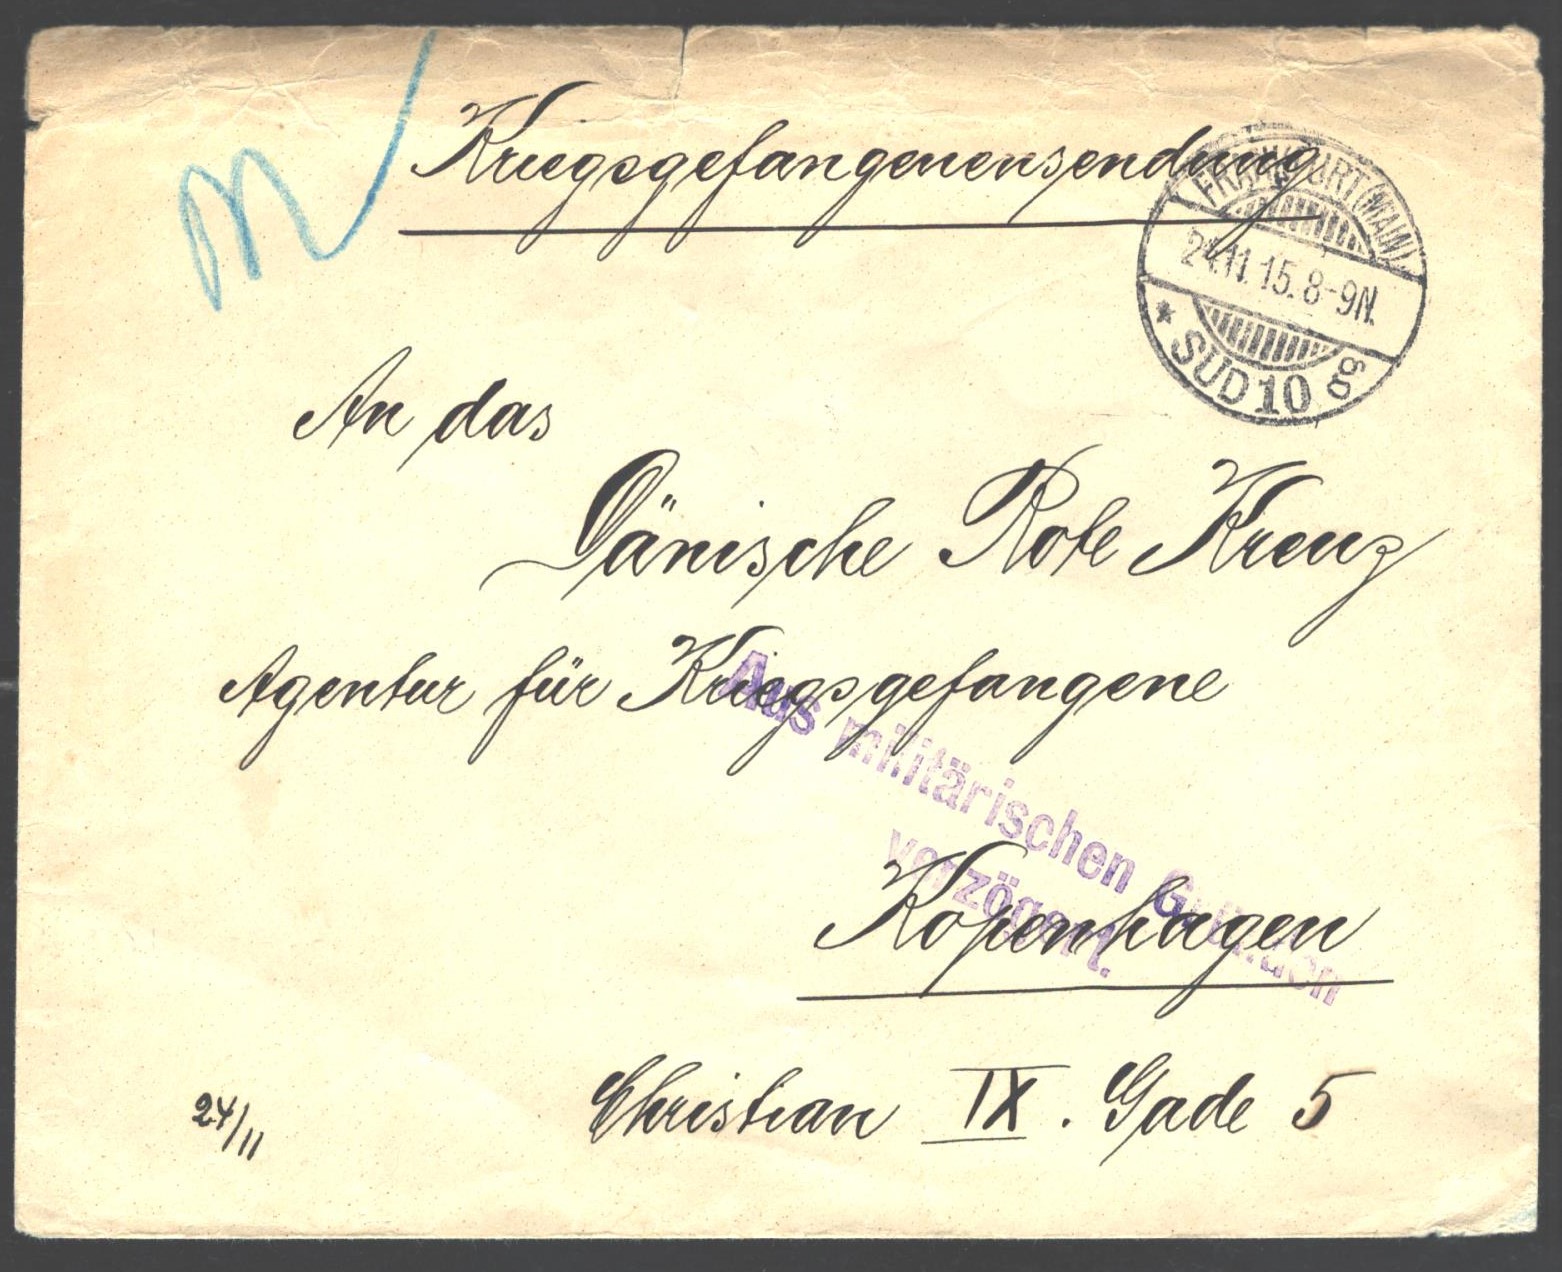 Kriegsgefangenensendung
FRANKFURT (MAIN)
24.11.15.8-9N.
* SÜD 10 g
An das
Dänische Rote Kreuz
Agentur für Kriegsgefangene
Aus militärischen Gründen
verzögert.
Kopenhagen
Christian IX. Gade 5
24/11